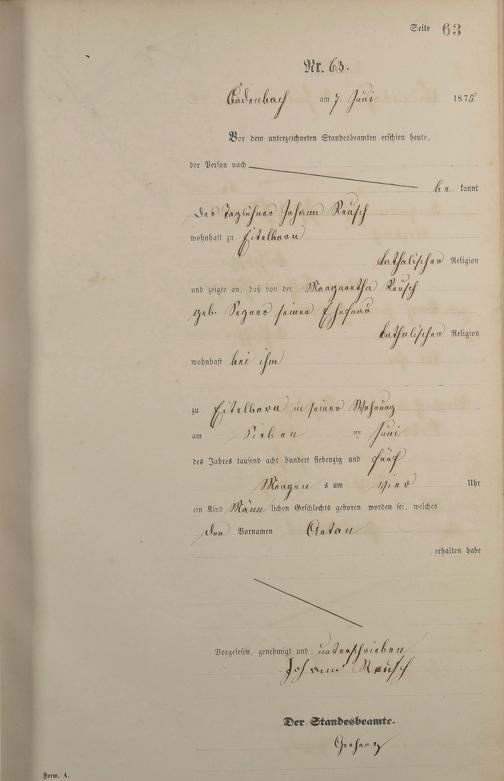 Seite 63
Nr. 63.
Cadenbach am 7. Juni 1875
Vor dem unterzeichneten Standesbeamten erschien heute,
der Person nach
be kannt
der Taglöhner Johann Reusch
wohnhaft zu Eitelborn
katholischer Religion
und zeigte an, daß von der Margaretha Reusch
geb. seiner Ehefrau
katholischer Religion
wohnhaft bei ihm
zu Eitelborn in seiner Wohnung
am Sieben ten Juni
des Jahres tausend acht hundert siebenzig und fünf
Morgen s um vier Uhr
ein Kind Männ lichen Geschlechts geboren worden sei, welches
den Vornamen
erhalten habe
Vorgelesen, genehmigt und unterschrieben
Johann Reusch
Der Standesbeamte.
Form. A.